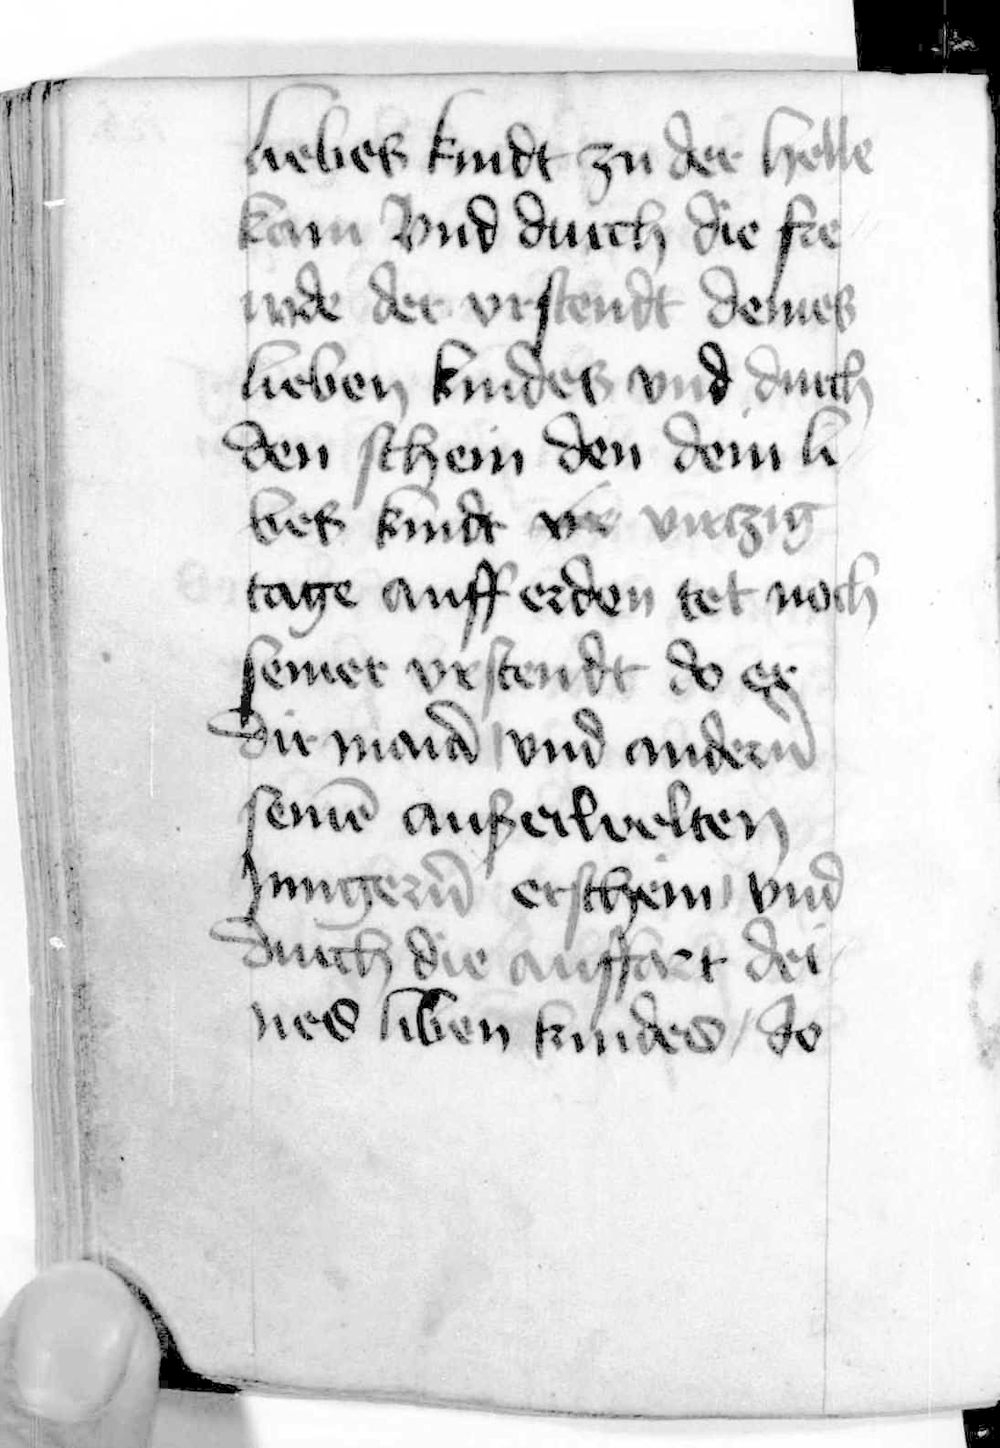 liebes kindt zu der helle
kam Vnd durch die fre
wde der vrstendt deines
lieben kindes vnd durch
den schein den dein li
bes kindt vir virczig
tage auff erden tet noch
seiner vrstendt do er
dir maria vnd andern̄
seinē auserwelten
Jungern̄ erschein vnd
durch die auffart dei
nes liben kindes / do